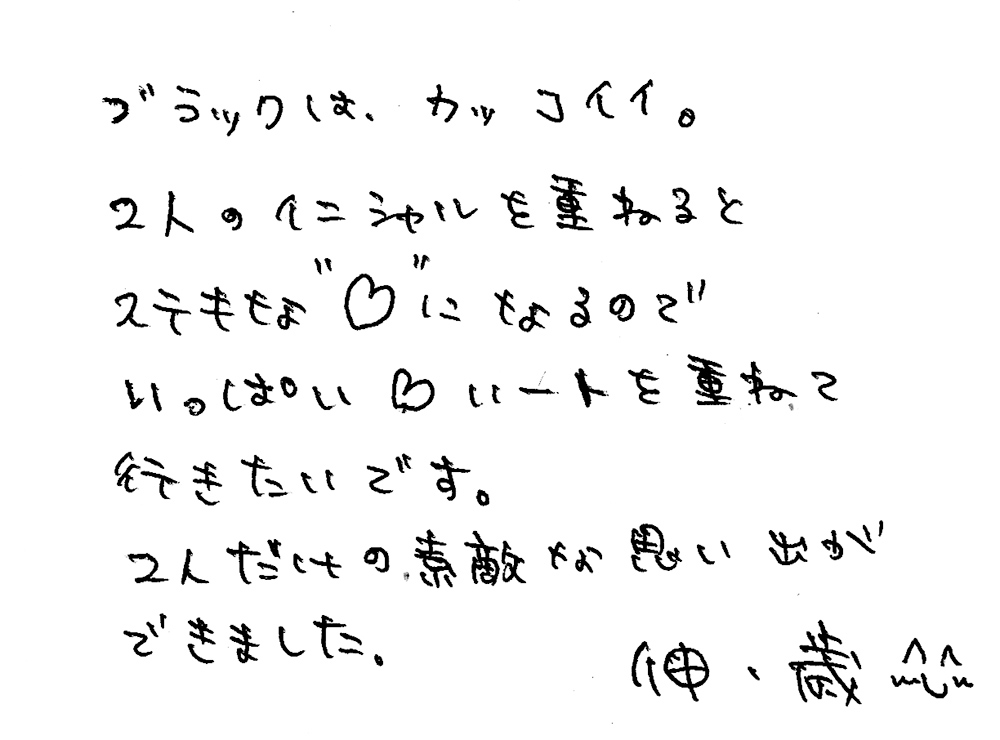 ブラックは、カッコイイ。
2人のイニシャルを重ねると
ステキな"♡"になるので
いっぱい♡ハートを重ねて
行きたいです。
2人だけの素敵な思い出が
できました。
伸・歳